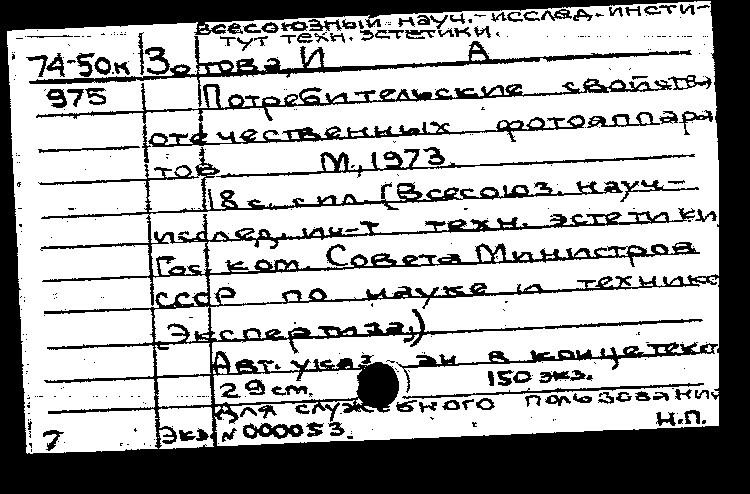 всесоюзный науч.-исслед. инсти-
тут техн. эстетики.
74-50к Зотова, И А
975 Потребительские свойства
отечественных фотоаппара
тов. М., 1973.
18 с. с ил. (Всесоюз. науч.-
исслед. ин-т техн. эстетики
Гос. ком. Совета Министров
СССР по науке и технике
Экспертиза.)
Авт. указан в конце текс
29 см. 150 экз.
Для служебного пользования
7 Экз. № 000053. Н.П.